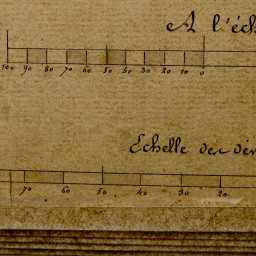 A l'éch
100 90 80 70 60 50 40 30 20 10 0
Echelle des dév
70 60 50 40 30 20